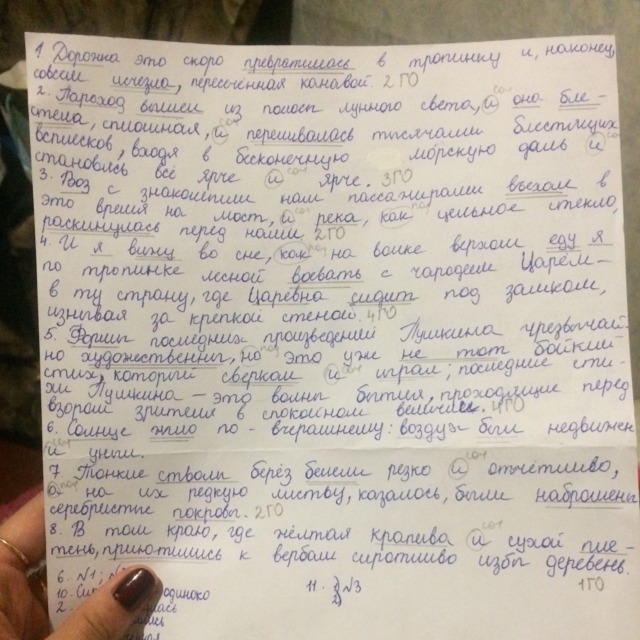 1. Дорожка это скоро превратилась в тропинку и, наконец,
совсем исчезла, пересечённая канавой. 2 ГО
2. Пароход вышел из полосы лунного света, и она бле-
стела, сплошная, и переливалась тысячами блестящих
всплесков, входя в бесконечную морскую даль и
становясь всё ярче и ярче. 3ГО
3. Воз с знакомыми нам пассажирами въехал в
это время на мост, и река, как цельное стекло,
раскинулась перед ними 2ГО
4. И я вижу во сне, как на волке верхом еду я
по тропинке лесной воевать с чародеем Царём –
в ту страну, где Царевна сидит под замком,
изнывая за крепкой стеной. 4ГО
5. Формы последних произведений Пушкина чрезвычай-
но художественны, но это уже не тот бойкий
стих, который сверкал и играл; последние сти-
хи Пушкина – это волны бытия, проходящие перед
взорой зрителя в спокойном величии. 4ГО
6. Солнце жгло по-вчерашнему: воздух был недвижен
и уныл.
7. Тонкие стволы берёз белели резко и отчётливо,
а на их редкую листву, казалось, были наброшены
серебристые покровы. 2ГО
8. В том краю, где жёлтая крапива и сухой пле-
тень, приютились к вербам сиротливо избы деревень.
1ГО
6. №1;
10. одиноко
11. №3
2.